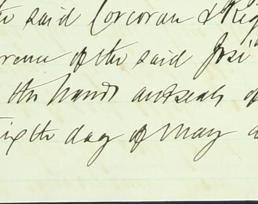 said Corcoran & Rig
of the said Josi
the hands and seals of
sixth day of May